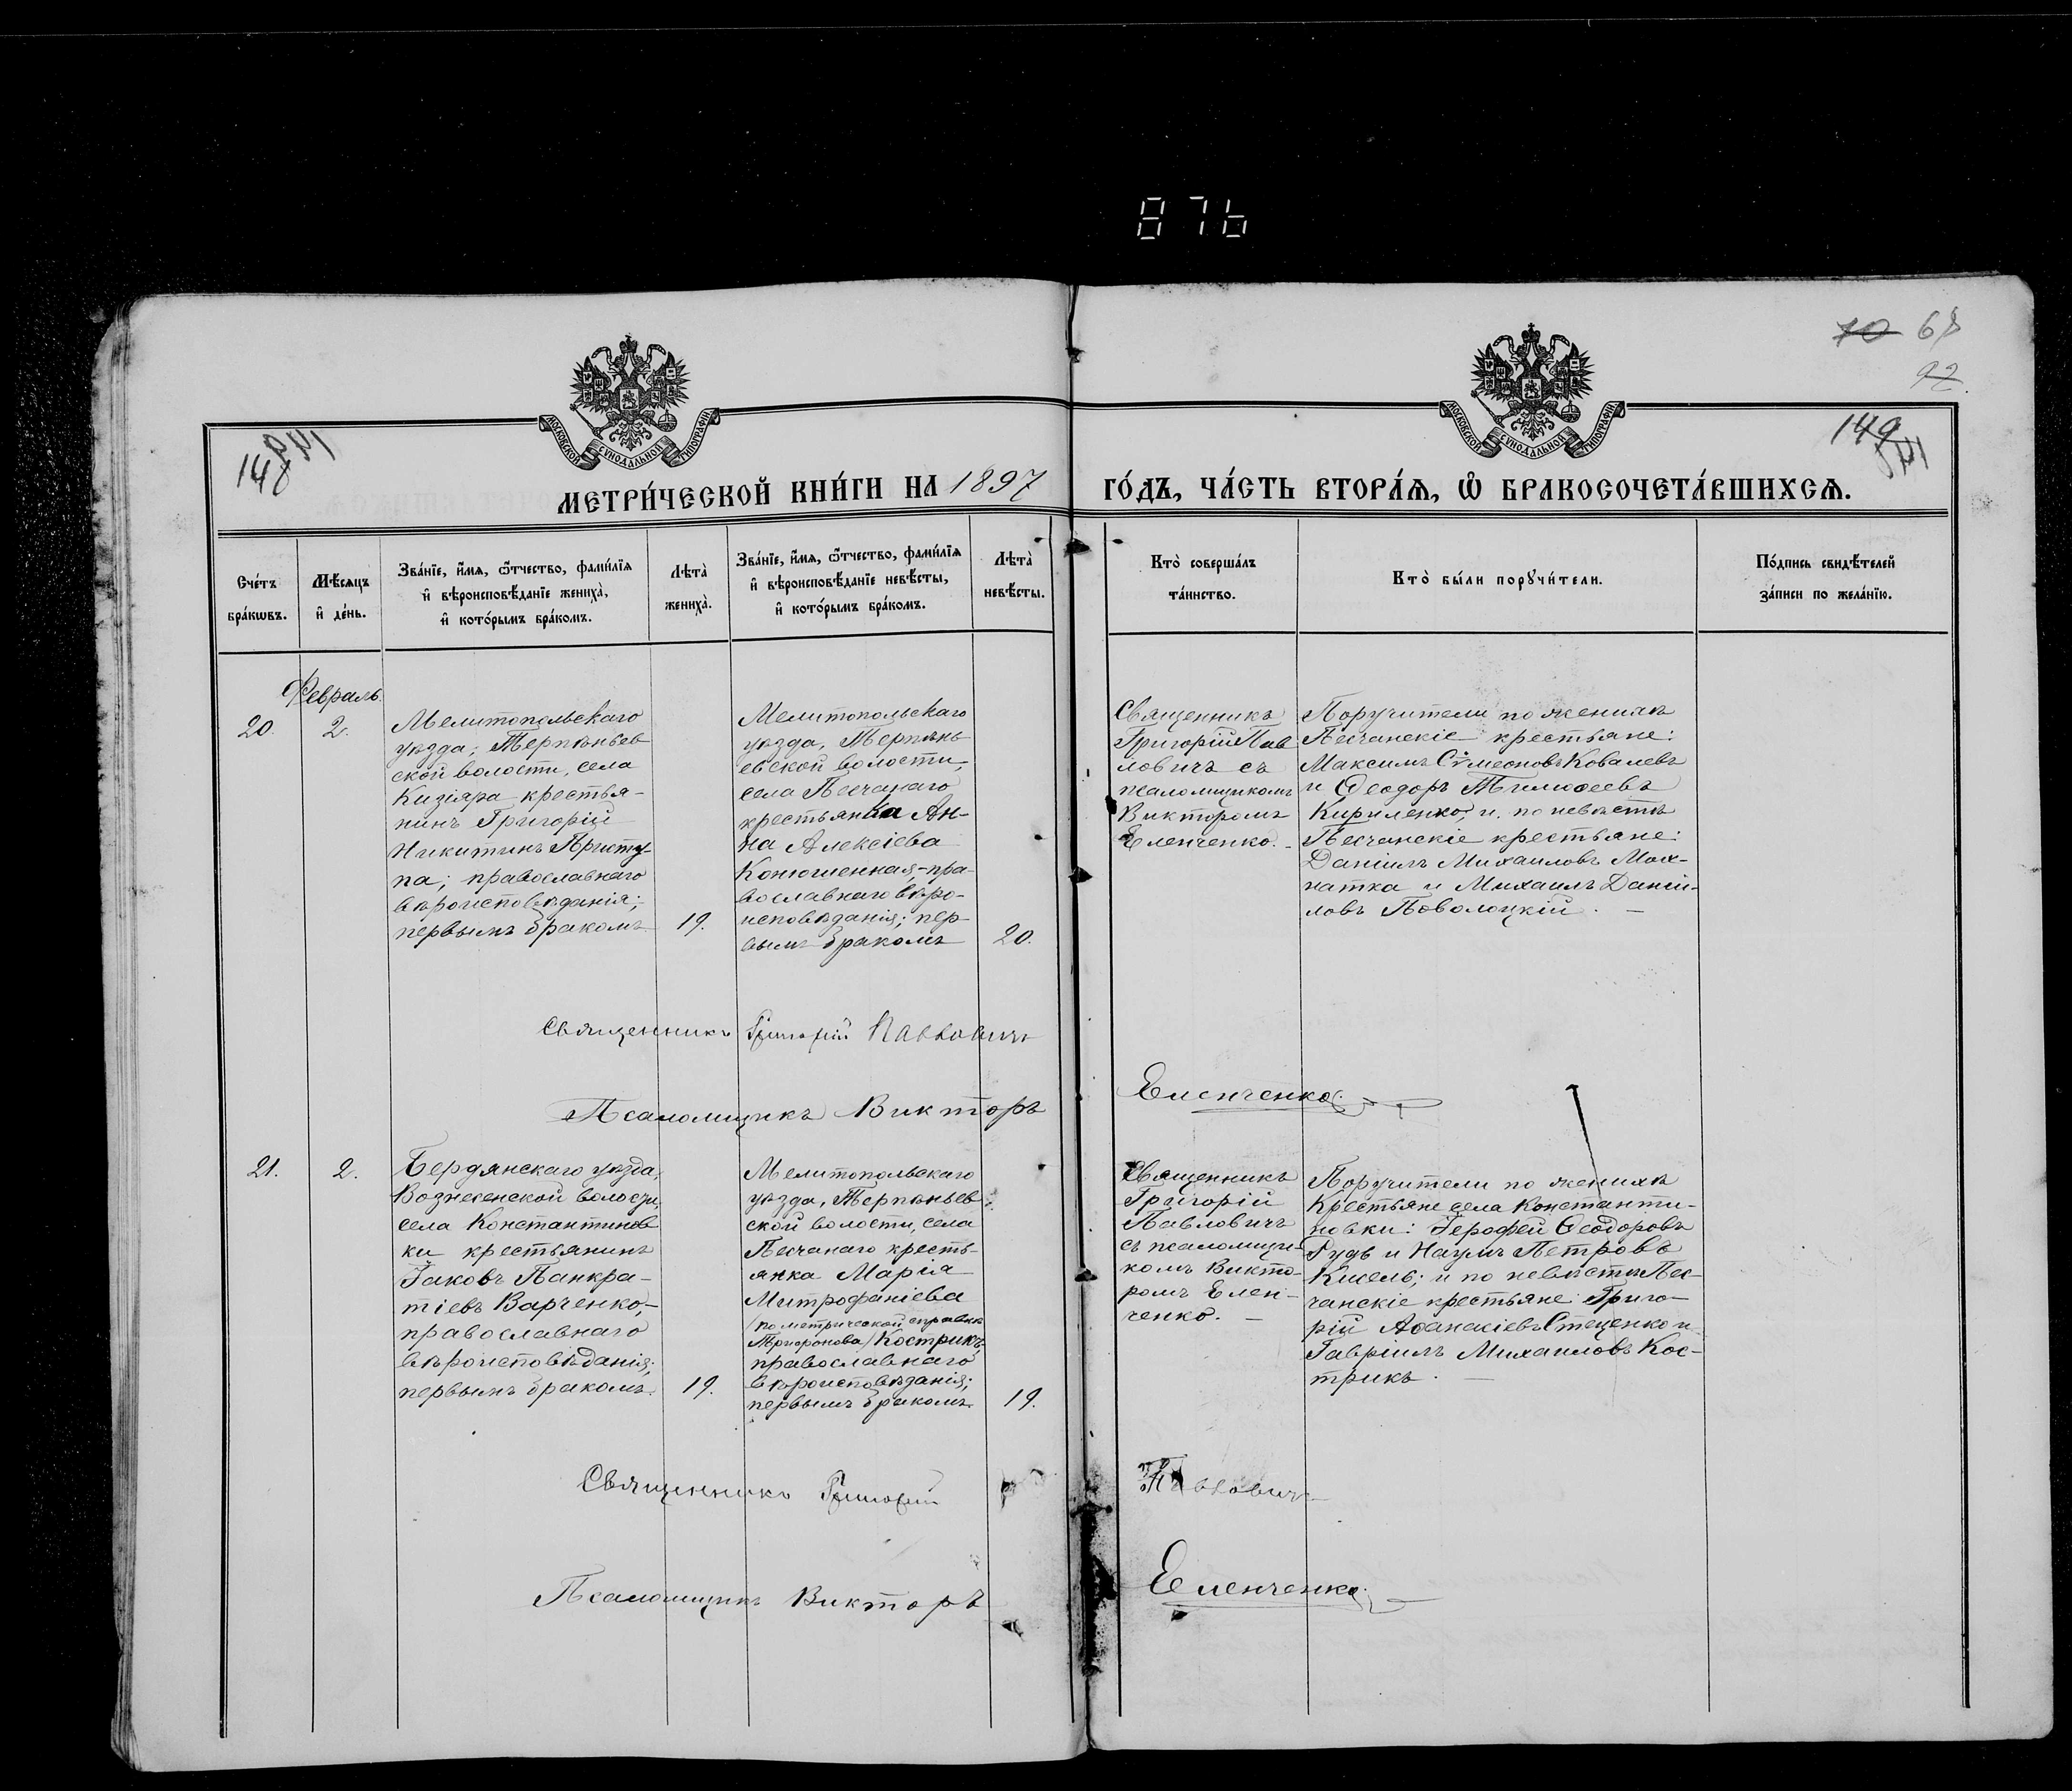 876
70 68
92
148
149
МОСКОВСКОЙ СѴНОДАЛЬНОЙ ТИПОГРАФІИ
МОСКОВСКОЙ СѴНОДАЛЬНОЙ ТИПОГРАФІИ
МЕТРИ́ЧЕСКОЙ КНИ́ГИ НА 1897 ГО́ДЪ, ЧА́СТЬ ВТОРА́Ѧ, Ѡ БРАКОСОЧЕТА́ВШИХСѦ.
Сче́тъ
бра́кѡвъ.
Мѣ́сѧцъ
и҆ де́нь.
Зва́нїе, и҆́мѧ, ѻ҆́тчество, фамил́їѧ
и҆ вѣроисповѣ́данїе жениха̀,
и҆ кото́рымъ бра́комъ.
Лѣта̀
жениха̀.
Зва́нїе, и҆́мѧ, ѻ҆́тчество, фамил́їѧ
и҆ вѣроисповѣ́данїе невѣ́сты,
и҆ кото́рымъ бра́комъ.
Лѣта̀
невѣ́сты.
Кто̀ соверша́лъ
та́инство.
Кто̀ бы́ли порꙋчи́тели.
По́дпись свидѣ́телей
за́писи по жела́нїю.
Февраль.
20.
2.
Мелитопольскаго
уѣзда, Терпѣньев
ской волости, села
Кизіяра крестья-
нинъ Григорій
Никитинъ Присту-
па; православнаго
вѣроисповѣданія;
первымъ бракомъ
19.
Мелитопольскаго
уѣзда, Терпѣнь
евской волости,
села Песчанаго
крестьянка Ан-
на Алексіева
Конюшенная,-пра-
вославнаго вѣро-
исповѣданія; пер-
вымъ бракомъ
20.
Священникъ
Григорій Пав
ловичъ съ
псаломщикомъ
Викторомъ
Еленченко. -
Поручители по женихѣ
Песчанскіе крестьяне:
Максимъ Сѵмеоновъ Ковалевъ
и Ѳеодоръ Тимоѳеевъ
Кириленко; и по невѣстѣ
Песчанскіе крестьяне:
Даніилъ Михаиловъ Мох-
натка и Михаилъ Даніи-
ловъ Поволоцкій. -
Священникъ Григорій Павловичъ
Псаломщикъ Викторъ Еленченко.
21.
2.
Бердянскаго уѣзда,
Вознесенской волости,
села Константинов
ки крестьянинъ
Іаковъ Панкра-
тіевъ Варченко,-
православнаго
вѣроисповѣданія;
первымъ бракомъ.
19.
Мелитопольскаго
уѣзда, Терпѣньев
ской волости, села
Песчанаго кресть-
янка Марія
Митрофаніева
/по метрической справкѣ
Трифонова/ Кострикъ-
православнаго
вѣроисповѣданія;
первымъ бракомъ.
19.
Священникъ
Григорій
Павловичъ
съ псаломщи-
комъ Викто-
ромъ Елен-
ченко. -
Поручители по женихѣ
Крестьяне села Константи-
новки: Іерофей Ѳеодоровъ
Рудь и Наумъ Петровъ
Кисель; и по невѣстѣ Пес-
чанскіе крестьяне: Григо-
рій Аѳанасіевъ Стеценко и
Гавріилъ Михаиловъ Кос-
трикъ. -
Священникъ Григорій Павловичъ
Псаломщикъ Викторъ Еленченко.